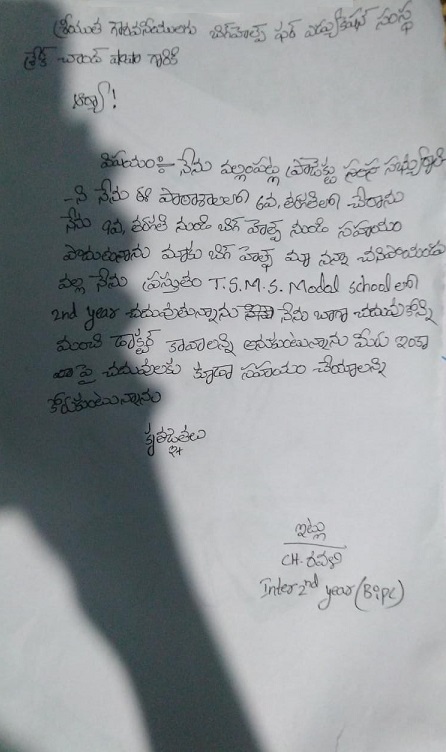 శ్రీయుత గౌరవనీయులగు బిగ్‌హెల్ప్ ఫర్ ఎడ్యుకేషన్ సంస్థ
చాంద్ పాషా గారికి
ఆర్యా!
విషయం:- నేను వల్లంపట్ల ప్రాజెక్టు
-ని నేను ఈ పాఠాశాలలో 6వ, తరగతిలో చేరాను
నేను 9వ, తరగతి నుండి బిగ్ హెల్ప్ నుండి సహయం
పొందుతున్నాను మాకు బిగ్ హెల్ప్ మా నాన్న చనిపోయిందు
వల్ల నేను ప్రస్తుతం T.S.M.S. Modal school లో
2nd year చదువుతున్నాను నేను బాగా చదువుకొన్ని
మంచి డాక్టర్ కావాలన్ని అనుకుంటున్నాను మీరు ఇంకా
పై చదువులకు కూడా సహయం చేయాలన్ని
కోరుకుంటున్నాను
కృతజ్ఞతలు
ఇట్లు
CH. రవళి
Inter 2nd year (BiPC)